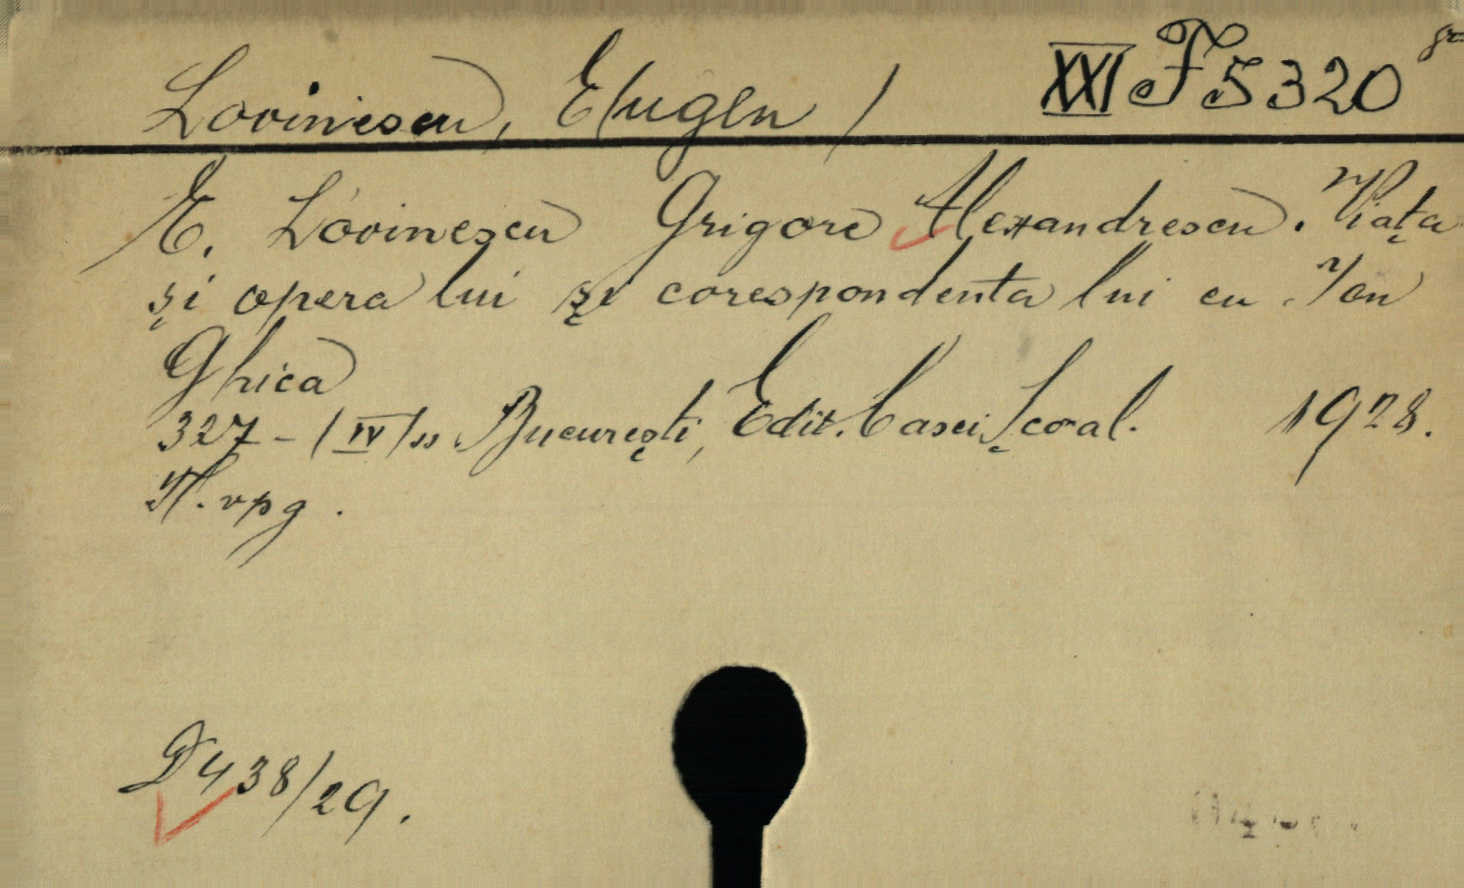 Lovinescu, E/ugen/ XXI F 5320
E. Lovinescu Grigore Alexandrescu. Viaţa
şi opera lui şi corespondenta lui cu Ion
Ghica
327 - /IV/ Bucureşti, Edit. Casei Şcoal. 1928.
D 438/29.